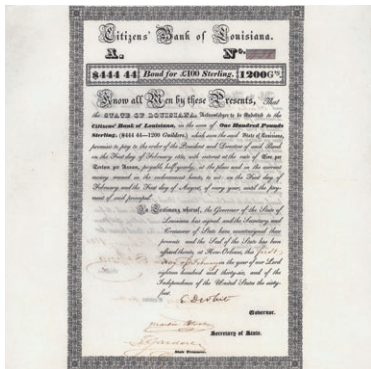 Citizens' Bank of Louisiana.
A. No.
$444 44 Bond for £100 Sterling. 1200 Gs
Know all Men by these Presents, That
the STATE OF LOUISIANA, Acknowledges to be Indebted to the
Citizens' Bank of Louisiana, in the sum of One Hundred Pounds
Sterling, ($444 44—1200 Guilders), which sum the said State of Louisiana,
promises to pay to the order of the President and Directors of said Bank
on the First day of February with interest at the rate of per
Centum per Annum, payable half-yearly, at the place and in the current
money named in the endorsement hereto, to wit: on the First day of
February and the First day of August, of every year, until the pay-
ment of said principal.
In Testimony whereof, the Governor of the State of
Louisiana has signed, and the Secretary and
Treasurer of State have countersigned these
presents and the Seal of the State has been
affixed thereto, at New-Orleans, this first
day of February in the year of our Lord
eighteen hundred and thirty-six, and of the
Independence of the United States the sixty-
first.
Governor.
Secretary of State.
State Treasurer.